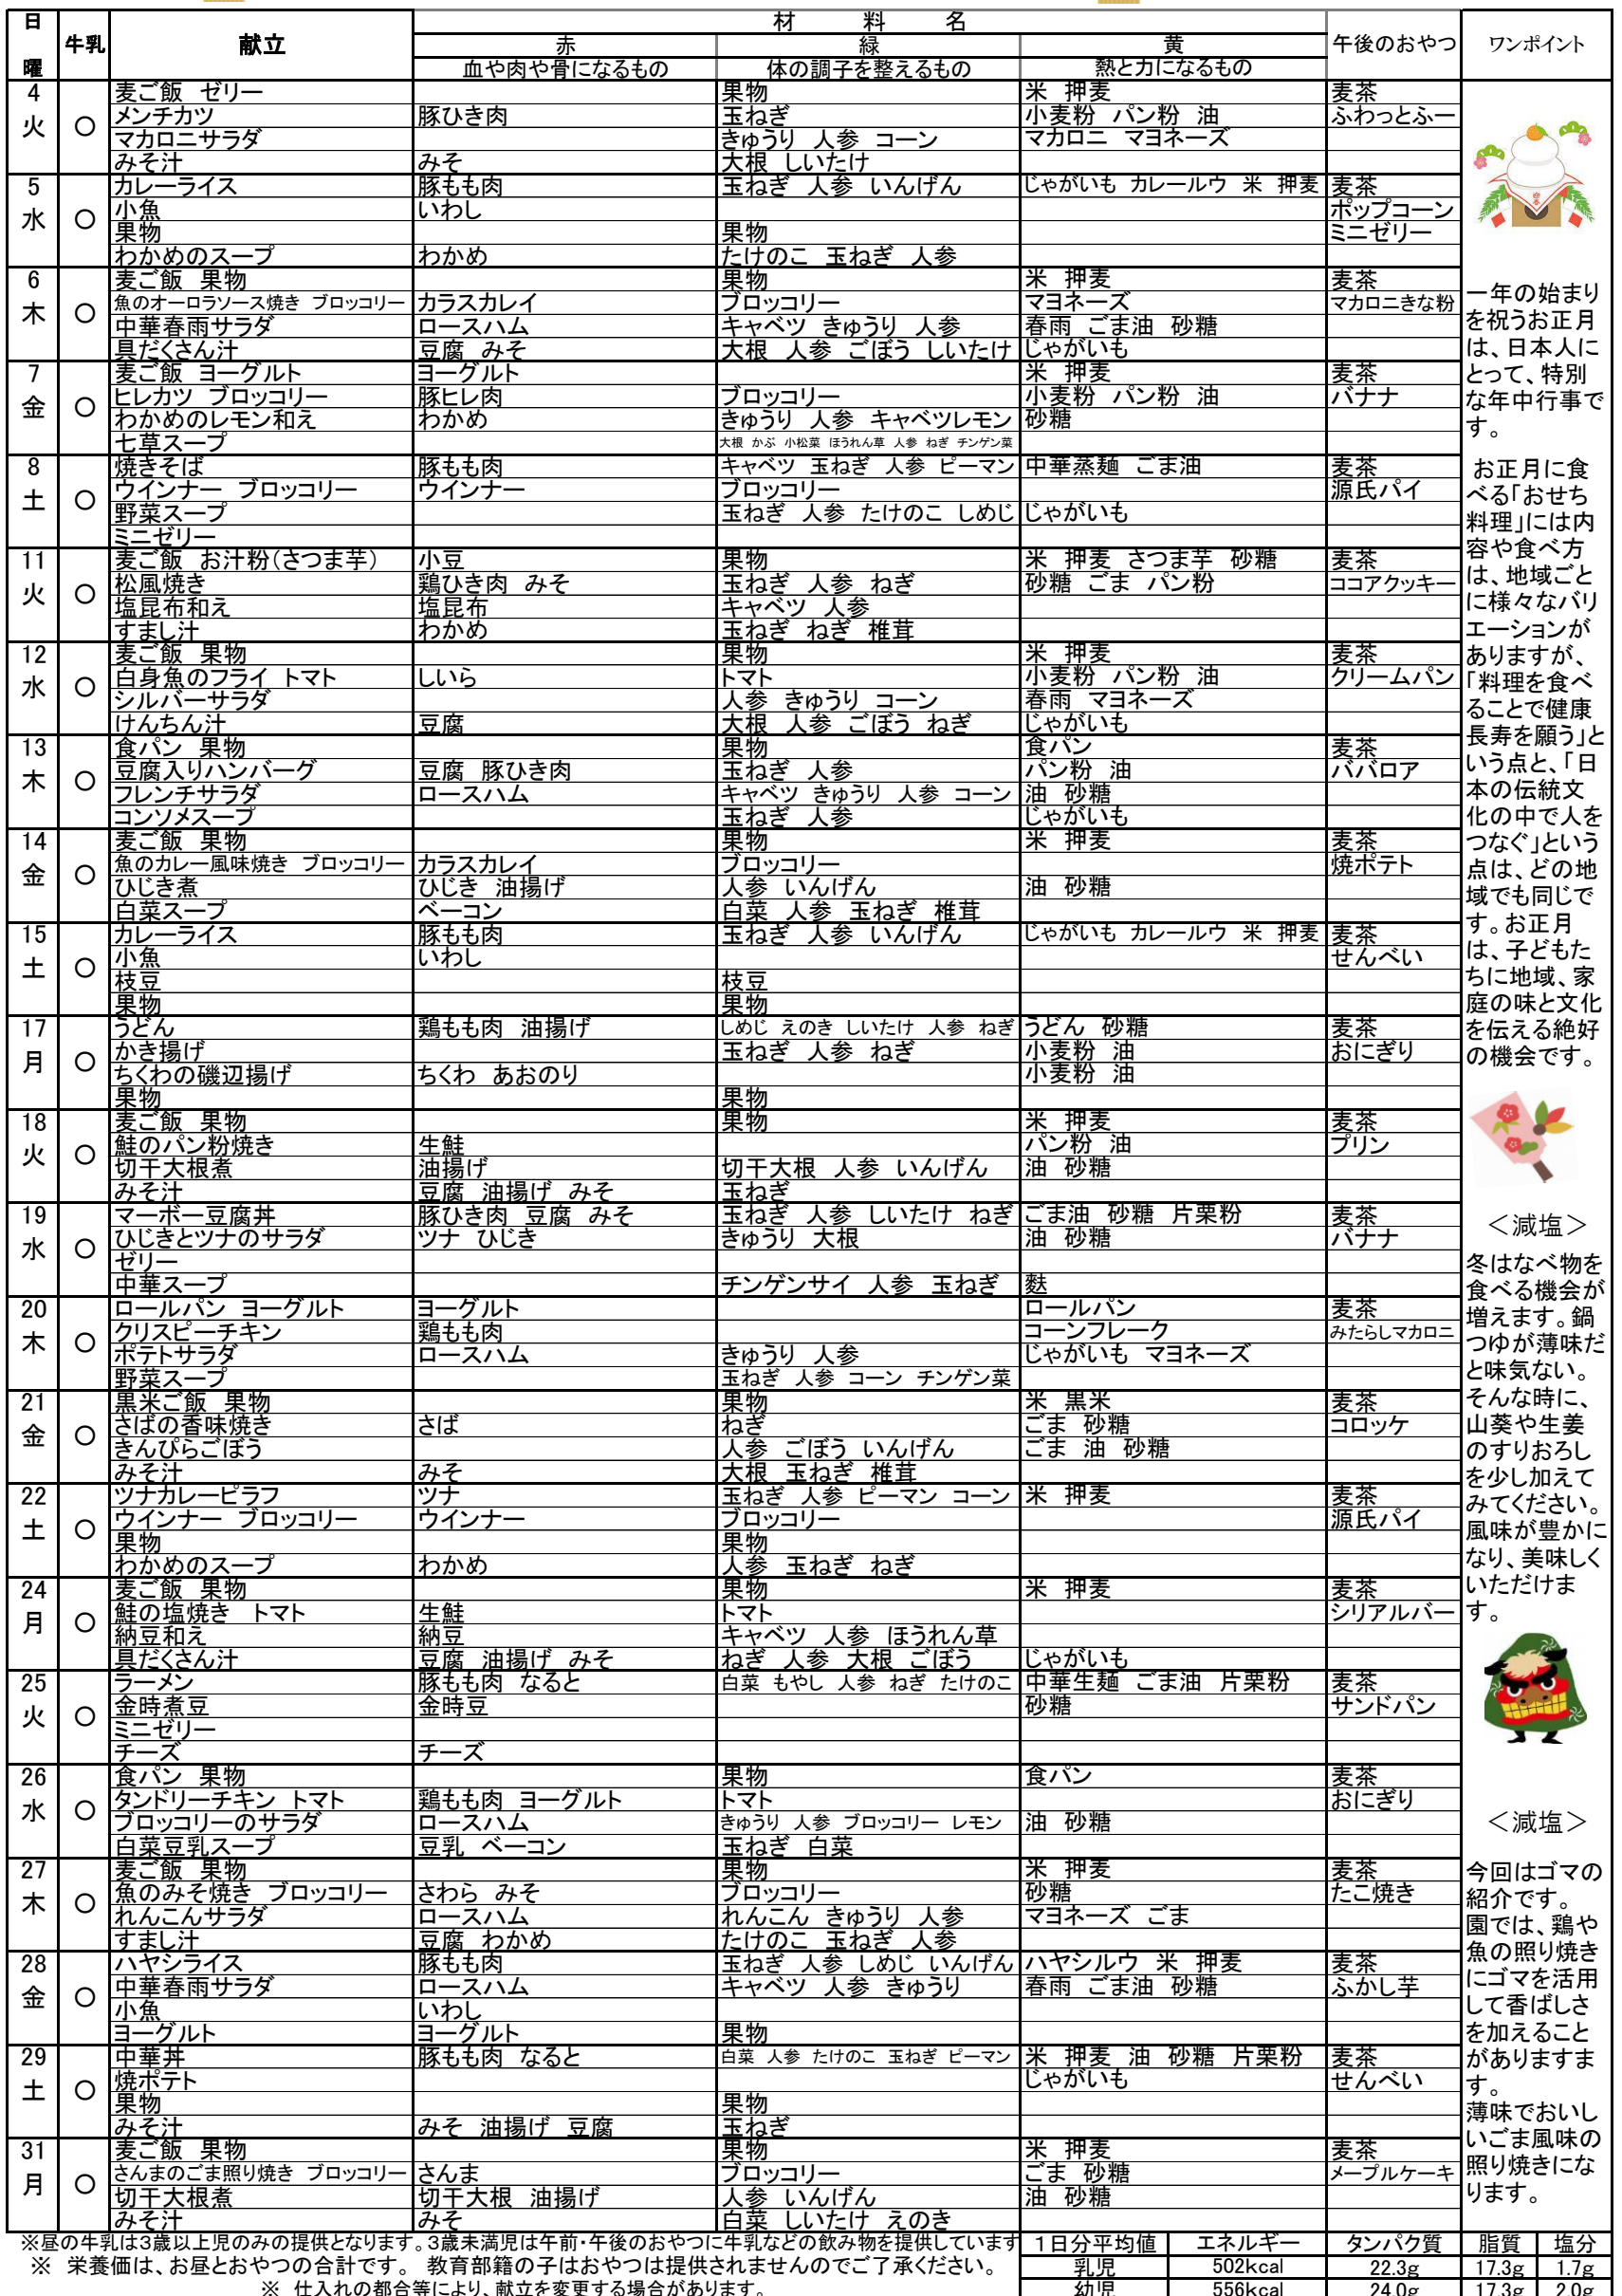 日 曜 牛乳 献立 材 料 名 午後のおやつ ワンポイント
赤 緑 黄
血や肉や骨になるもの 体の調子を整えるもの 熱と力になるもの
4 火 ○
麦ご飯 ゼリー 果物 米 押麦 麦茶
メンチカツ 豚ひき肉 玉ねぎ 小麦粉 パン粉 油 ふわっとふー
マカロニサラダ きゅうり 人参 コーン マカロニ マヨネーズ
みそ汁 みそ 大根 しいたけ
5 水 ○
カレーライス 豚もも肉 玉ねぎ 人参 いんげん じゃがいも カレールウ 米 押麦 麦茶
小魚 いわし ポップコーン
果物 果物 ミニゼリー
わかめのスープ わかめ たけのこ 玉ねぎ 人参
6 木 ○
麦ご飯 果物 果物 米 押麦 麦茶
魚のオーロラソース焼き ブロッコリー カラスカレイ ブロッコリー マヨネーズ マカロニきな粉
中華春雨サラダ ロースハム キャベツ きゅうり 人参 春雨 ごま油 砂糖
具だくさん汁 豆腐 みそ 大根 人参 ごぼう しいたけ じゃがいも
7 金 ○
麦ご飯 ヨーグルト ヨーグルト 米 押麦 麦茶
ヒレカツ ブロッコリー 豚ヒレ肉 ブロッコリー 小麦粉 パン粉 油 バナナ
わかめのレモン和え わかめ きゅうり 人参 キャベツレモン 砂糖
七草スープ 大根 かぶ 小松菜 ほうれん草 人参 ねぎ チンゲン菜
8 土 ○
焼きそば 豚もも肉 キャベツ 玉ねぎ 人参 ピーマン 中華蒸麺 ごま油 麦茶
ウインナー ブロッコリー ウインナー ブロッコリー 源氏パイ
野菜スープ 玉ねぎ 人参 たけのこ しめじ じゃがいも
ミニゼリー
11 火 ○
麦ご飯 お汁粉(さつま芋) 小豆 果物 米 押麦 さつま芋 砂糖 麦茶
松風焼き 鶏ひき肉 みそ 玉ねぎ 人参 ねぎ 砂糖 ごま パン粉 ココアクッキー
塩昆布和え 塩昆布 キャベツ 人参
すまし汁 わかめ 玉ねぎ ねぎ 椎茸
12 水 ○
麦ご飯 果物 果物 米 押麦 麦茶
白身魚のフライ トマト しいら トマト 小麦粉 パン粉 油 クリームパン
シルバーサラダ 人参 きゅうり コーン 春雨 マヨネーズ
けんちん汁 豆腐 大根 人参 ごぼう ねぎ じゃがいも
13 木 ○
食パン 果物 果物 食パン 麦茶
豆腐入りハンバーグ 豆腐 豚ひき肉 玉ねぎ 人参 パン粉 油 ババロア
フレンチサラダ ロースハム キャベツ きゅうり 人参 コーン 油 砂糖
コンソメスープ 玉ねぎ 人参 じゃがいも
14 金 ○
麦ご飯 果物 果物 米 押麦 麦茶
魚のカレー風味焼き ブロッコリー カラスカレイ ブロッコリー 焼ポテト
ひじき煮 ひじき 油揚げ 人参 いんげん 油 砂糖
白菜スープ ベーコン 白菜 人参 玉ねぎ 椎茸
15 土 ○
カレーライス 豚もも肉 玉ねぎ 人参 いんげん じゃがいも カレールウ 米 押麦 麦茶
小魚 いわし せんべい
枝豆 枝豆
果物 果物
17 月 ○
うどん 鶏もも肉 油揚げ しめじ えのき しいたけ 人参 ねぎ うどん 砂糖 麦茶
かき揚げ 玉ねぎ 人参 ねぎ 小麦粉 油 おにぎり
ちくわの磯辺揚げ ちくわ あおのり 小麦粉 油
果物 果物
18 火 ○
麦ご飯 果物 果物 米 押麦 麦茶
鮭のパン粉焼き 生鮭 パン粉 油 プリン
切干大根煮 油揚げ 切干大根 人参 いんげん 油 砂糖
みそ汁 豆腐 油揚げ みそ 玉ねぎ
19 水 ○
マーボー豆腐丼 豚ひき肉 豆腐 みそ 玉ねぎ 人参 しいたけ ねぎ ごま油 砂糖 片栗粉 麦茶
ひじきとツナのサラダ ツナ ひじき きゅうり 大根 油 砂糖 バナナ
ゼリー
中華スープ チンゲンサイ 人参 玉ねぎ 麩
20 木 ○
ロールパン ヨーグルト ヨーグルト ロールパン 麦茶
クリスピーチキン 鶏もも肉 コーンフレーク みたらしマカロニ
ポテトサラダ ロースハム きゅうり 人参 じゃがいも マヨネーズ
野菜スープ 玉ねぎ 人参 コーン チンゲン菜
21 金 ○
黒米ご飯 果物 果物 米 黒米 麦茶
さばの香味焼き さば ねぎ ごま 砂糖 コロッケ
きんぴらごぼう 人参 ごぼう いんげん ごま 油 砂糖
みそ汁 みそ 大根 玉ねぎ 椎茸
22 土 ○
ツナカレーピラフ ツナ 玉ねぎ 人参 ピーマン コーン 米 押麦 麦茶
ウインナー ブロッコリー ウインナー ブロッコリー 源氏パイ
果物 果物
わかめのスープ わかめ 人参 玉ねぎ ねぎ
24 月 ○
麦ご飯 果物 果物 米 押麦 麦茶
鮭の塩焼き トマト 生鮭 トマト シリアルバー
納豆和え 納豆 キャベツ 人参 ほうれん草
具だくさん汁 豆腐 油揚げ みそ ねぎ 人参 大根 ごぼう じゃがいも
25 火 ○
ラーメン 豚もも肉 なると 白菜 もやし 人参 ねぎ たけのこ 中華生麺 ごま油 片栗粉 麦茶
金時煮豆 金時豆 砂糖 サンドパン
ミニゼリー
チーズ チーズ
26 水 ○
食パン 果物 果物 食パン 麦茶
タンドリーチキン トマト 鶏もも肉 ヨーグルト トマト おにぎり
ブロッコリーのサラダ ロースハム きゅうり 人参 ブロッコリー レモン 油 砂糖
白菜豆乳スープ 豆乳 ベーコン 玉ねぎ 白菜
27 木 ○
麦ご飯 果物 果物 米 押麦 麦茶
魚のみそ焼き ブロッコリー さわら みそ ブロッコリー 砂糖 たこ焼き
れんこんサラダ ロースハム れんこん きゅうり 人参 マヨネーズ ごま
すまし汁 豆腐 わかめ たけのこ 玉ねぎ 人参
28 金 ○
ハヤシライス 豚もも肉 玉ねぎ 人参 しめじ いんげん ハヤシルウ 米 押麦 麦茶
中華春雨サラダ ロースハム キャベツ 人参 きゅうり 春雨 ごま油 砂糖 ふかし芋
小魚 いわし
ヨーグルト ヨーグルト 果物
29 土 ○
中華丼 豚もも肉 なると 白菜 人参 たけのこ 玉ねぎ ピーマン 米 押麦 油 砂糖 片栗粉 麦茶
焼ポテト じゃがいも せんべい
果物 果物
みそ汁 みそ 油揚げ 豆腐 玉ねぎ
31 月 ○
麦ご飯 果物 果物 米 押麦 麦茶
さんまのごま照り焼き ブロッコリー さんま ブロッコリー ごま 砂糖 メープルケーキ
切干大根煮 切干大根 油揚げ 人参 いんげん 油 砂糖
みそ汁 みそ 白菜 しいたけ えのき
一年の始まり
を祝うお正月
は、日本人に
とって、特別
な年中行事で
す。
お正月に食
べる「おせち
料理」には内
容や食べ方
は、地域ごと
に様々なバリ
エーションが
ありますが、
「料理を食べ
ることで健康
長寿を願う」と
いう点と、「日
本の伝統文
化の中で人を
つなぐ」という
点は、どの地
域でも同じで
す。お正月
は、子どもた
ちに地域、家
庭の味と文化
を伝える絶好
の機会です。
＜減塩＞
冬はなべ物を
食べる機会が
増えます。鍋
つゆが薄味だ
と味気ない。
そんな時に、
山葵や生姜
のすりおろし
を少し加えて
みてください。
風味が豊かに
なり、美味しく
いただけま
す。
＜減塩＞
今回はゴマの
紹介です。
園では、鶏や
魚の照り焼き
にゴマを活用
して香ばしさ
を加えること
がありますま
す。
薄味でおいし
いごま風味の
照り焼きにな
ります。
※昼の牛乳は3歳以上児のみの提供となります。3歳未満児は午前・午後のおやつに牛乳などの飲み物を提供しています
※ 栄養価は、お昼とおやつの合計です。 教育部籍の子はおやつは提供されませんのでご了承ください。
※ 仕入れの都合等により、献立を変更する場合があります。
1日分平均値 エネルギー タンパク質 脂質 塩分
乳児 502kcal 22.3g 17.3g 1.7g
幼児 556kcal 24.0g 17.3g 2.0g